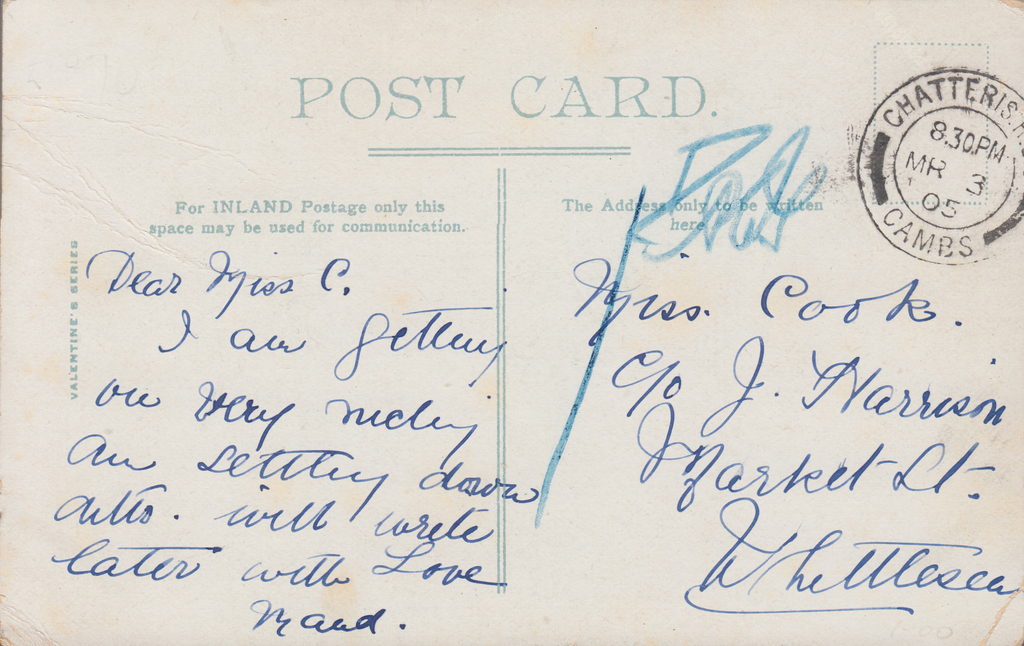 POST CARD.
For INLAND Postage only this
space may be used for communication.
The Address only to be written
here
VALENTINE'S SERIES
CHATTERIS.
8.30PM
MR 3
05
CAMBS
Dear Miss C.
I am getting
on very nicely
am settling down
ditto. will write
later with Love
Maud.
Miss. Cook.
c/o J. Harrison
Market St.
Whittlesea